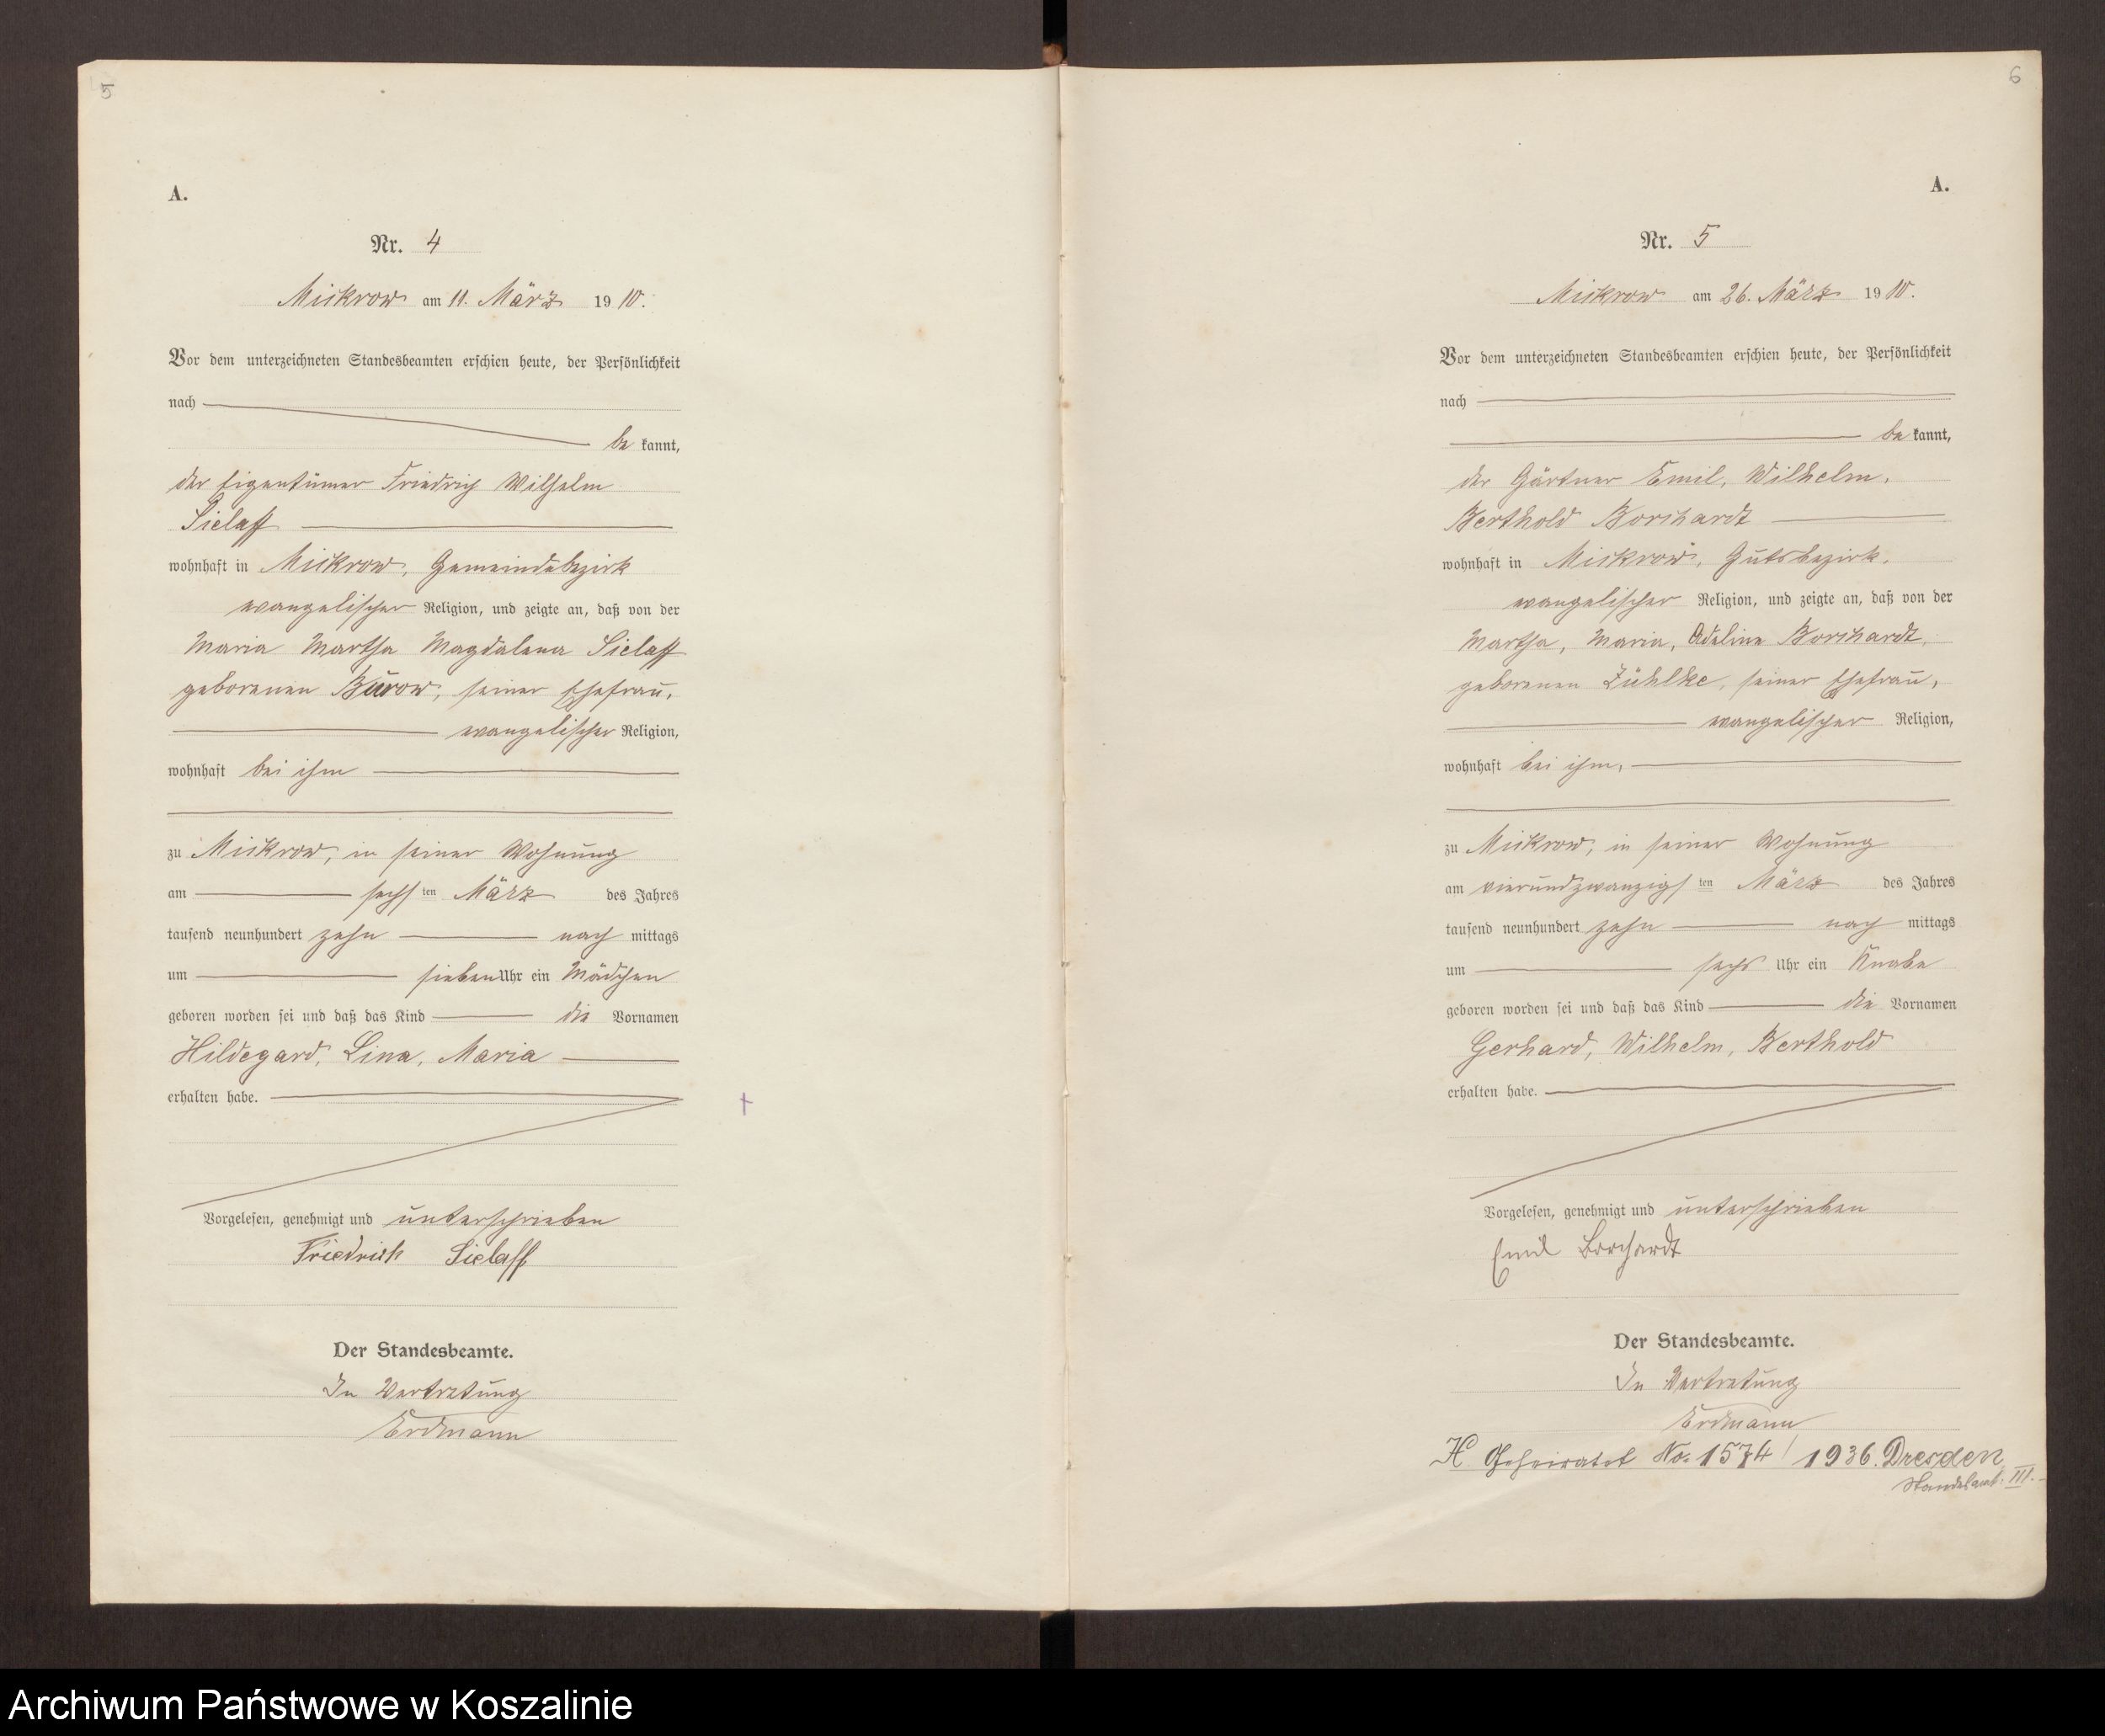 5
A.
Nr. 4
Mickrow am 11. März 1910.
Vor dem unterzeichneten Standesbeamten erschien heute, der Persönlichkeit
nach
be kannt,
der Eigentümer Friedrich Wilhelm
Sielaff
wohnhaft in Mickrow, Gemeindebezirk
evangelischer Religion, und zeigte an, daß von der
Maria Martha Magdalena Sielaff
geborenen Burow, seiner Ehefrau,
evangelischer Religion,
wohnhaft bei ihm
zu Mickrow, in seiner Wohnung
am sechsten März des Jahres
tausend neunhundert zehn nach mittags
um sieben Uhr ein Mädchen
geboren worden sei und daß das Kind die Vornamen
Hildegard, Lina, Maria
erhalten habe.
Vorgelesen, genehmigt und unterschrieben
Friedrich Sielaff
Der Standesbeamte.
In Vertretung
Erdmann
6
A.
Nr. 5
Mickrow am 26. März 1910.
Vor dem unterzeichneten Standesbeamten erschien heute, der Persönlichkeit
nach
be kannt,
der Gärtner Emil, Wilhelm,
Berthold Borchardt
wohnhaft in Mickrow, Gutsbezirk,
evangelischer Religion, und zeigte an, daß von der
Martha, Maria, Adeline Borchardt,
geborenen Zühlke, seiner Ehefrau,
evangelischer Religion,
wohnhaft bei ihm,
zu Mickrow, in seiner Wohnung
am vierundzwanzigsten März des Jahres
tausend neunhundert zehn nach mittags
um sechs Uhr ein Knabe
geboren worden sei und daß das Kind die Vornamen
Gerhard, Wilhelm, Berthold
erhalten habe.
Vorgelesen, genehmigt und unterschrieben
Emil Borchardt
Der Standesbeamte.
In Vertretung
Erdmann
H. Geheiratet No. 1574/1936. Dresden
Standesamt. III.
Archiwum Państwowe w Koszalinie